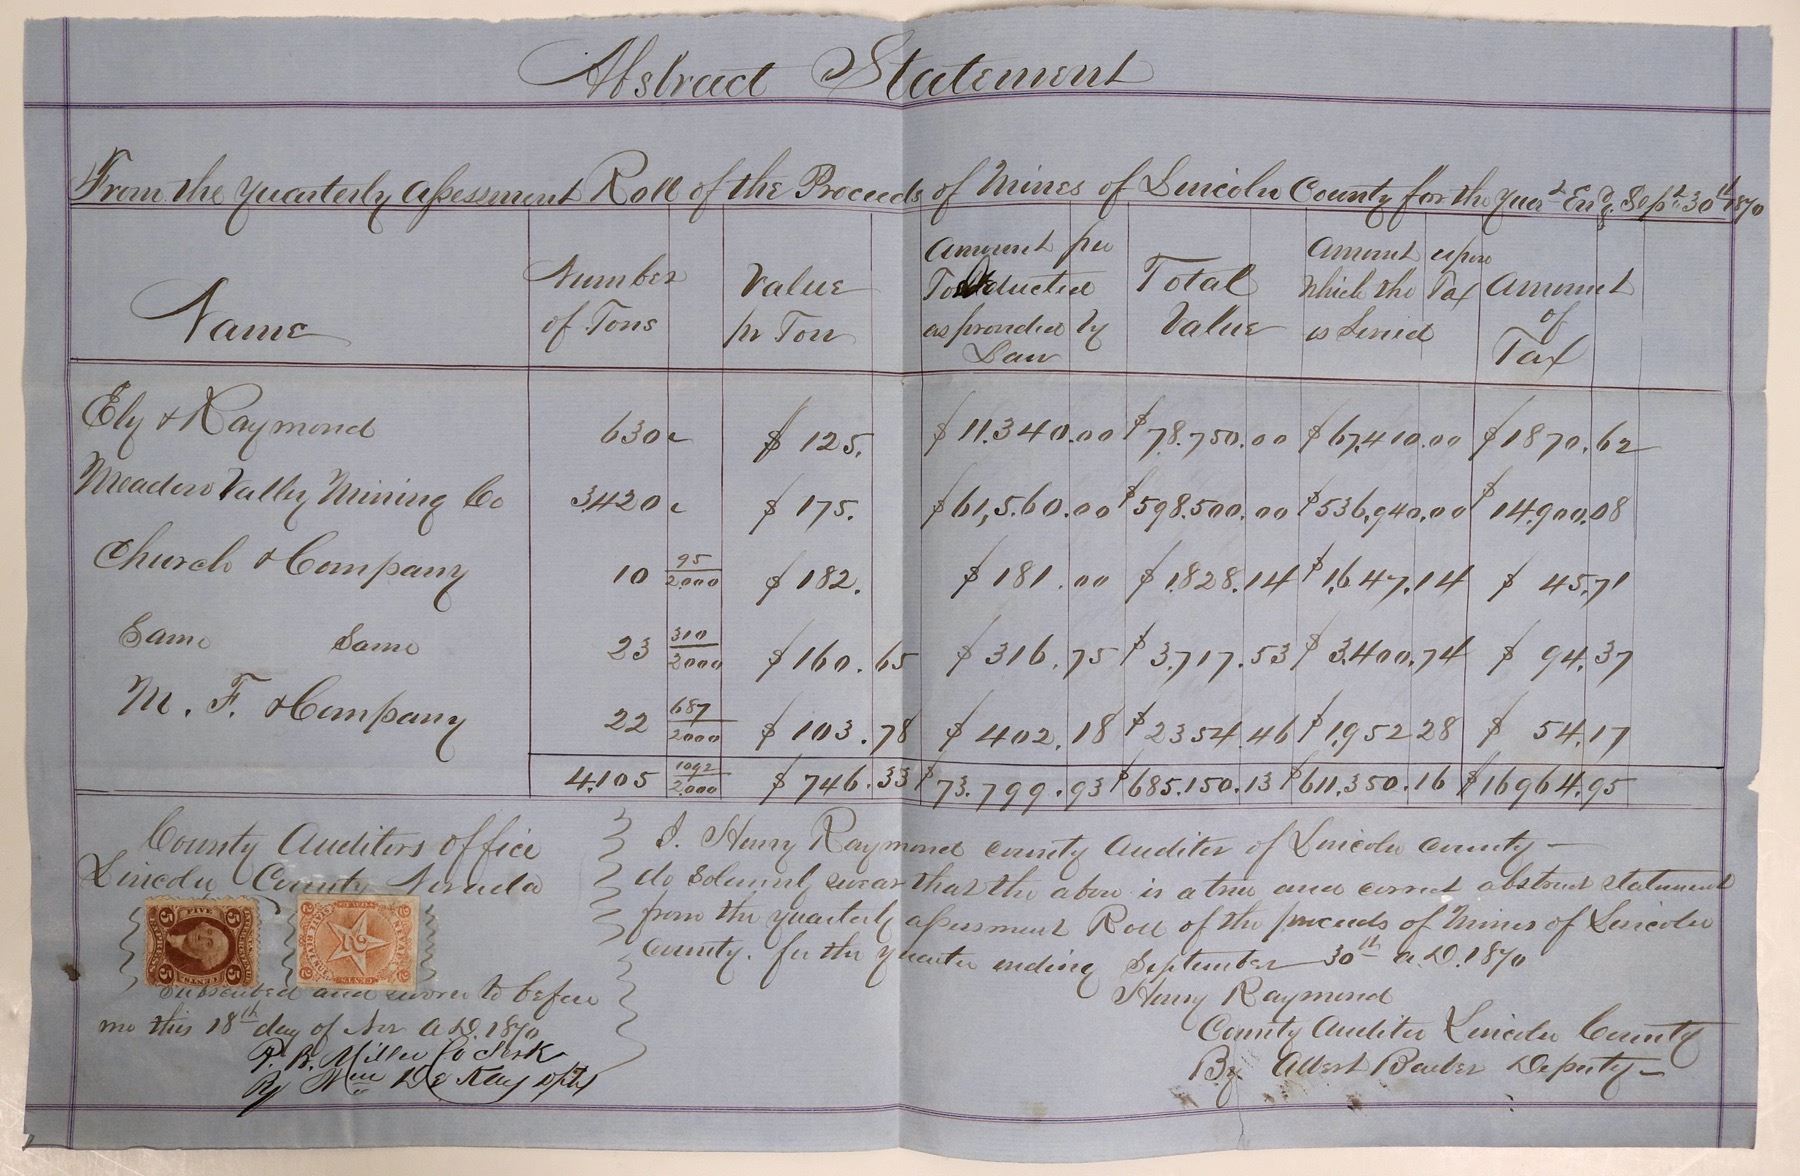 Abstract Statement
From the Quarterly Assessment Roll of the Proceeds of Mines of Lincoln County for the Quar^t End^g Sep^t 30^th 1870
Name | Number of Tons | Value pr Ton | Amount per Ton deducted as provided by Law | Total Value | Amount upon which the Tax is Levied | Amount of Tax
Ely & Raymond 630 $ 125. $ 11.340.00 $ 78.750.00 $ 67,410.00 $ 1870.62
Meadow Valley Mining Co 3.420 $ 175. $ 61,5.60.00 $ 598.500.00 $ 536,940.00 $ 14.900.08
Church & Company 10 95/2.000 $ 182. $ 181.00 $ 1.828.14 $ 1.647.14 $ 45.71
Same Same 23 310/2000 $ 160.65 $ 316.75 $ 3.717.53 $ 3.400.74 $ 94.37
M. F. & Company 22 687/2000 $ 103.78 $ 402.18 $ 2354.46 $ 1.952 28 $ 54.17
4.105 1092/2.000 $ 746.33 $ 73.799.93 $ 685.150.13 $ 611.350.16 $ 16964.95
County Auditors office
Lincoln County Nevada
FIVE
5 5
CENTS
5 5
2 2
STATE REVENUE
NEVADA
2
2 2
Subscribed and sworn to before
me this 18^th day of Nov A.D. 1870
P. B. Miller Co Clerk
By Wm De Kay Dpty
I. Henry Raymond county Auditor of Lincoln county
do solemnly swear that the above is a true and correct abstract statement
from the quarterly assessment Roll of the proceeds of Mines of Lincoln
county. for the quarter ending September 30^th A.D. 1870
Henry Raymond
County Auditor Lincoln County
By Albert Deputy